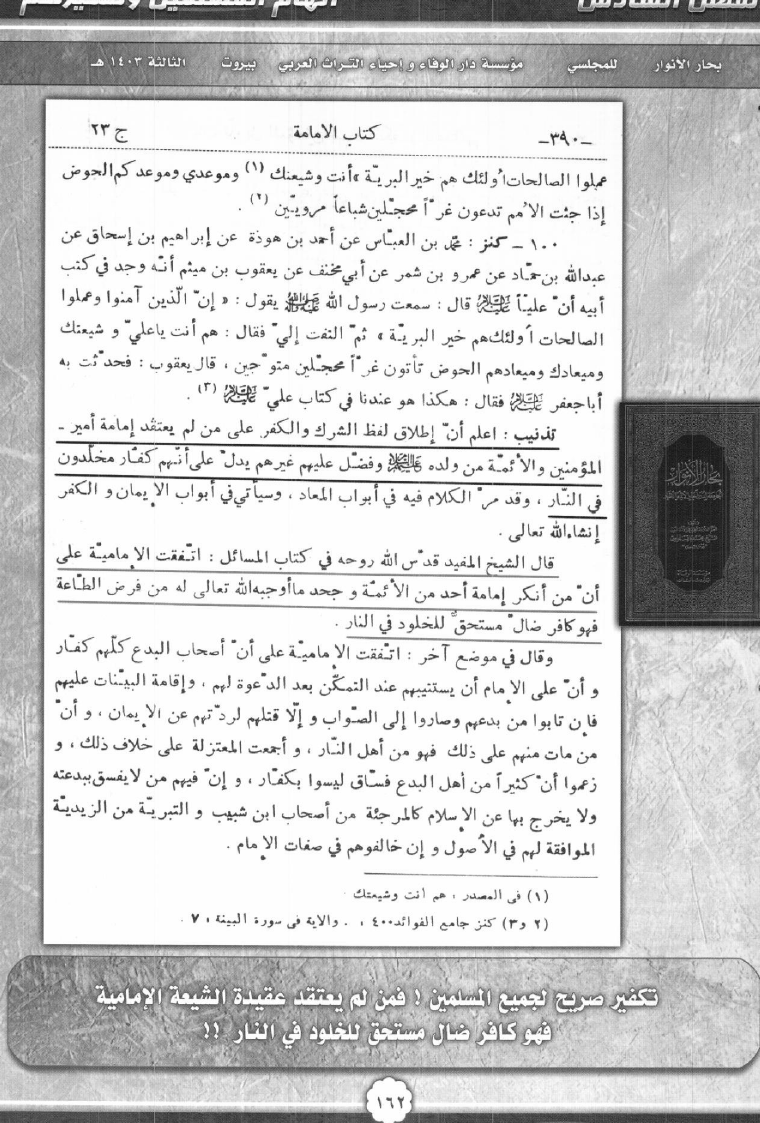 الفصل السادس
اتهام المسلمين وتكفيرهم
بحار الأنوار للمجلسي مؤسسة دار الوفاء و إحياء التراث العربي بيروت الثالثة ١٤٠٣ هـ
ـ٣٩٠ـ كتاب الامامة ج ٢٣
عملوا الصالحات اُولئك هم خير البريّة » أنت وشيعتك (١) وموعدي وموعدكم الحوض
إذا جئت الاُمم تدعون غرّاً محجّلين شباعاً مرويّين (٢) .
١٠٠ ـ كنز : محمّد بن العبّاس عن أحمد بن هوذة عن إبراهيم بن إسحاق عن
عبدالله بن حمّاد عن عمرو بن شمر عن أبي مخنف عن يعقوب بن ميثم أنّه وجد في كتب
أبيه أنّ عليّاً عليه السلام قال : سمعت رسول الله صلى الله عليه وآله يقول : « إنّ الّذين آمنوا وعملوا
الصالحات اُولئك هم خير البريّة » ثمّ التفت إليّ فقال : هم أنت ياعليّ و شيعتك
وميعادك وميعادهم الحوض تأتون غرّاً محجّلين متوّجين ، قال يعقوب : فحدّثت به
أباجعفر عليه السلام فقال : هكذا هو عندنا في كتاب عليّ عليه السلام (٣) .
تذنيب : اعلم أنّ إطلاق لفظ الشرك والكفر على من لم يعتقد إمامة أمير ـ
المؤمنين والأئمّة من ولده عليهم السلام وفضّل عليهم غيرهم يدلّ على أنّهم كفّار مخلّدون
في النّار ، وقد مرّ الكلام فيه في أبواب المعاد ، وسيأتي في أبواب الإيمان و الكفر
إنشاءالله تعالى .
قال الشيخ المفيد قدّس الله روحه في كتاب المسائل : اتّفقت الإماميّة على
أنّ من أنكر إمامة أحد من الأئمّة و جحد ماأوجبه الله تعالى له من فرض الطّاعة
فهو كافر ضالّ مستحقّ للخلود في النار .
وقال في موضع آخر : اتّفقت الإماميّة على أنّ أصحاب البدع كلّهم كفّار
و أنّ على الإمام أن يستتيبهم عند التمكّن بعد الدّعوة لهم ، وإقامة البيّنات عليهم
فإن تابوا من بدعهم وصاروا إلى الصّواب و إلّا قتلهم لردّتهم عن الإيمان ، و أنّ
من مات منهم على ذلك فهو من أهل النّار ، و أجمعت المعتزلة على خلاف ذلك ، و
زعموا أنّ كثيراً من أهل البدع فسّاق ليسوا بكفّار ، و إنّ فيهم من لايفسق ببدعته
ولا يخرج بها عن الإسلام كالمرجئة من أصحاب ابن شبيب و التبريّة من الزيديّة
الموافقة لهم في الاُصول و إن خالفوهم في صفات الإمام .
(١) فى المصدر : هم انت وشيعتك
(٢ و٣) كنز جامع الفوائد ٤٠٠ ، . والاية فى سورة البينة : ٧ .
تكفير صريح لجميع المسلمين ! فمن لم يعتقد عقيدة الشيعة الإمامية
فهو كافر ضال مستحق للخلود في النار !!
١٦٢